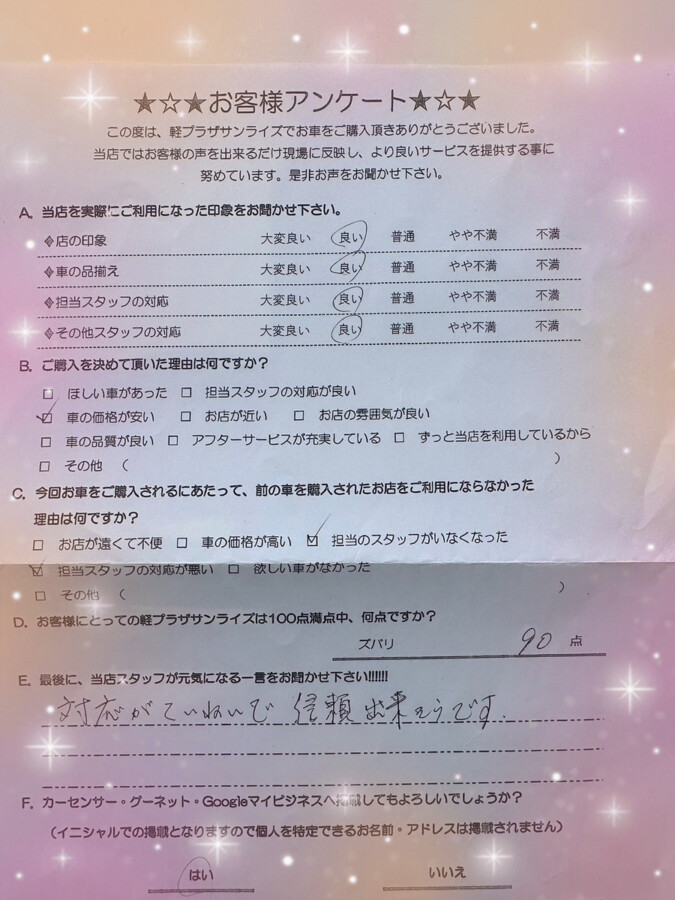 ★☆★お客様アンケート★☆★
この度は、軽プラザサンライズでお車をご購入頂きありがとうございました。
当店ではお客様の声を出来るだけ現場に反映し、より良いサービスを提供する事に
努めています。是非お声をお聞かせ下さい。
A. 当店を実際にご利用になった印象をお聞かせ下さい。
◈店の印象 大変良い 良い 普通 やや不満 不満
◈車の品揃え 大変良い 良い 普通 やや不満 不満
◈担当スタッフの対応 大変良い 良い 普通 やや不満 不満
◈その他スタッフの対応 大変良い 良い 普通 やや不満 不満
B. ご購入を決めて頂いた理由は何ですか？
□ ほしい車があった □ 担当スタッフの対応が良い
☑ 車の価格が安い □ お店が近い □ お店の雰囲気が良い
□ 車の品質が良い □ アフターサービスが充実している □ ずっと当店を利用しているから
□ その他 （ ）
C. 今回お車をご購入されるにあたって、前の車を購入されたお店をご利用にならなかった
理由は何ですか？
□ お店が遠くて不便 □ 車の価格が高い ☑ 担当のスタッフがいなくなった
☑ 担当スタッフの対応が悪い □ 欲しい車がなかった
□ その他 （ ）
D. お客様にとっての軽プラザサンライズは100点満点中、何点ですか？
ズバリ 90 点
E. 最後に、当店スタッフが元気になる一言をお聞かせ下さい!!!!!!
対応がていねいで 信頼出来そうです.
F. カーセンサー・グーネット・Googleマイビジネスへ掲載してもよろしいでしょうか？
（イニシャルでの掲載となりますので個人を特定できるお名前・アドレスは掲載されません）
はい いいえ